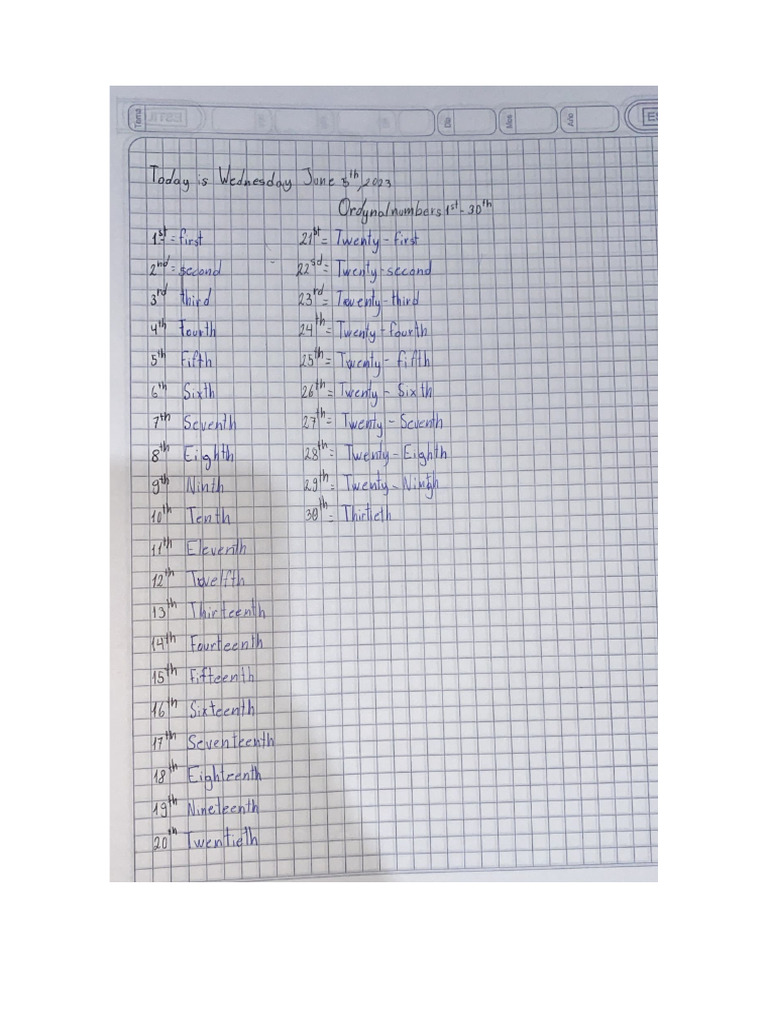 Tema
Día
Mes
Año
Today is Wednesday June 5th, 2023
Ordynal numbers 1st - 30th
1st = first
2nd = second
3rd third
4th Fourth
5th Fifth
6th Sixth
7th Seventh
8th Eighth
9th Ninth
10th Tenth
11th Eleventh
12th Twelfth
13th Thirteenth
14th Fourteenth
15th Fifteenth
16th Sixteenth
17th Seventeenth
18th Eighteenth
19th Nineteenth
20th Twentieth
21st = Twenty-first
22sd = Twenty-second
23rd = Twenty-third
24th = Twenty-fourth
25th = Twenty-fifth
26th = Twenty-Sixth
27th = Twenty-Seventh
28th = Twenty-Eighth
29th = Twenty-Ningh
30th = Thirtieth